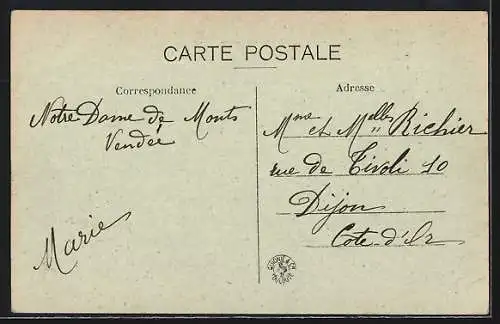 CARTE POSTALE
Correspondance
Notre Dame de Monts
Vendée
Marie
Adresse
Mme et Melles Richier
rue de Tivoli 10
Dijon
Cote-d'Or